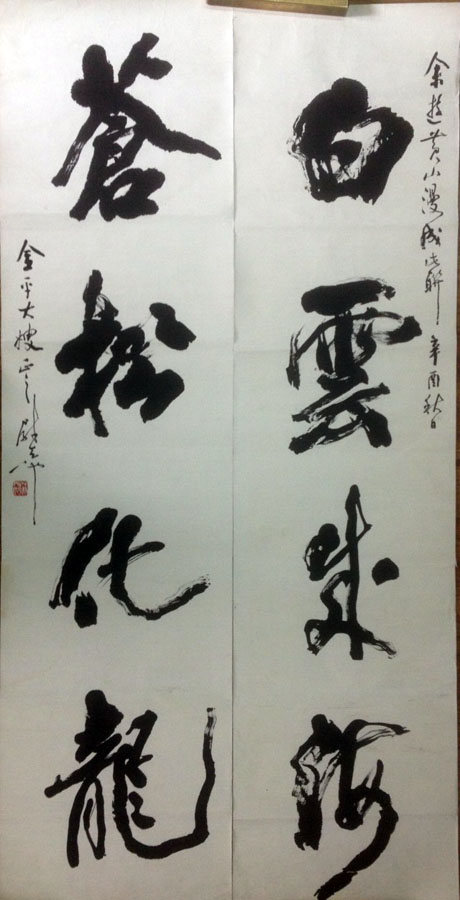 余遊黃山漫成此聯 辛酉秋日
白雲成海
蒼松化龍
金平大嫂正之